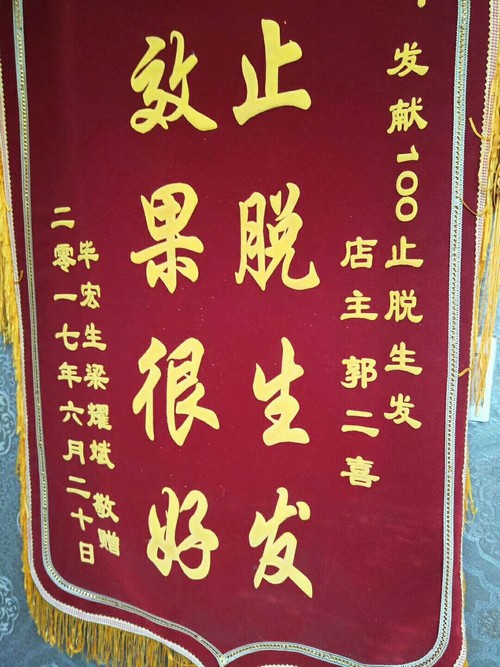 发献100止脱生发
店主郭二喜
止脱生发
效果很好
毕宏生梁耀斌敬赠
二零一七年六月二十日